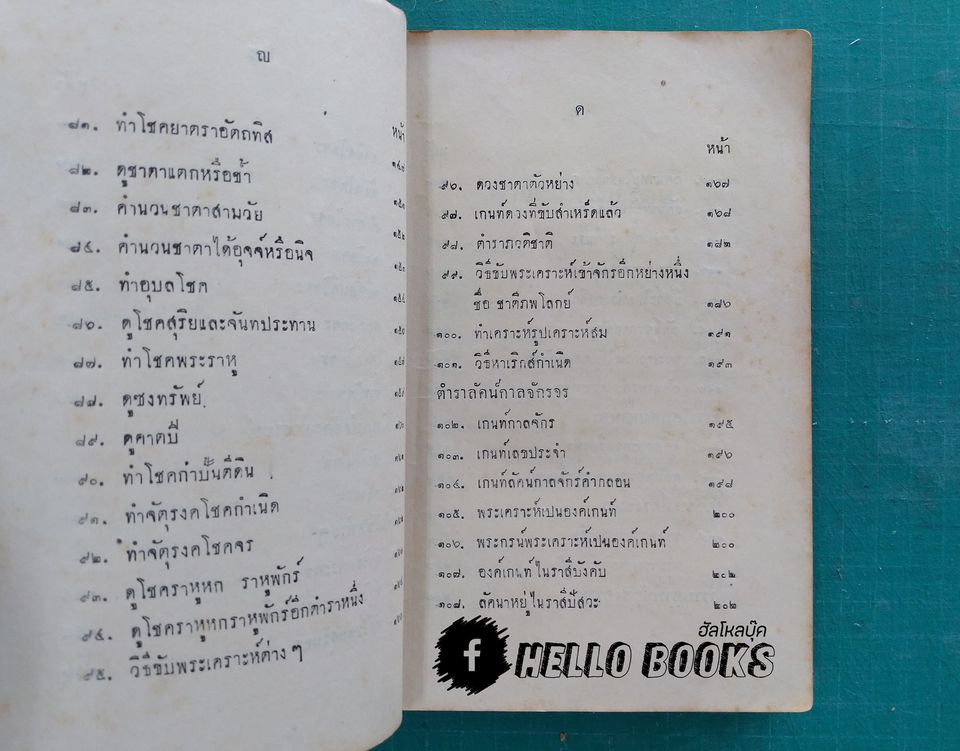 ญ
หน้า
๘๑. ทำโชคยาตราอัตถทิส
๘๒. ดูชาตาแตกหรือช้ำ
๘๓. คำนวนชาตาสามวัย
๘๔. คำนวนชาตาได้อุจจ์หรือนิจ
๘๕. ทำอุบลโชค
๘๖. ดูโชคสุริยและจันทประทาน
๘๗. ทำโชคพระราหู
๘๘. ดูซงทรัพย์
๘๙. ดูคาตบี่
๙๐. ทำโชคกำบั้นดีดิน
๙๑. ทำจัตุรงคโชคกำเนิด
๙๒. ทำจัตุรงคโชคจร
๙๓. ดูโชคราหูหก ราหูพักร์
๙๔. ดูโชคราหูหกราหูพักร์อีกตำราหนึ่ง
๙๕. วิธีขับพระเคราะห์ต่าง ๆ
ด
หน้า
๙๖. ดวงชาตาตัวหย่าง ๑๖๗
๙๗. เกนท์ดวงที่ขับสำเหร็ดแล้ว ๑๖๘
๙๘. ตำราภวติชาติ ๑๘๒
๙๙. วิธีขับพระเคราะห์เข้าจักรอีกหย่างหนึ่ง
ชื่อ ชาตีภพโลกย์ ๑๘๖
๑๐๐. ทำเคราะห์รูปเคราะห์สม ๑๙๑
๑๐๑. วิธีหาเริกส์กำเนิด ๑๙๓
ตำราลัคน์กาลจักรจร
๑๐๒. เกนท์กาลจักร ๑๙๕
๑๐๓. เกนท์เลขประจำ ๑๙๖
๑๐๔. เกนท์ลัคน์กาลจักร์คำกลอน ๑๙๘
๑๐๕. พระเคราะห์เปนองค์เกนท์ ๒๐๐
๑๐๖. พระกรน์พระเคราะห์เปนองค์เกนท์ ๒๐๐
๑๐๗. องค์เกนท์ในราสีบังคับ ๒๐๒
๑๐๘. ลัคนาหยู่ในราสีปัสวะ ๒๐๒
ฮัลโหลบุ๊ค
f HELLO BOOKS